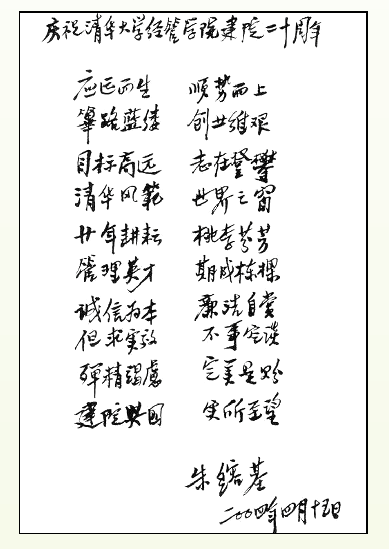 庆祝清华大学经管学院建院二十周年
应运而生 顺势而上
筚路蓝缕 创业维艰
目标高远 志在登攀
清华风范 世界之窗
廿年耕耘 桃李芬芳
管理英才 期成栋梁
诚信为本 廉洁自赏
但求实效 不事空谈
殚精竭虑 完美是盼
建院兴国 实所至望
朱镕基
二〇〇四年四月十五日